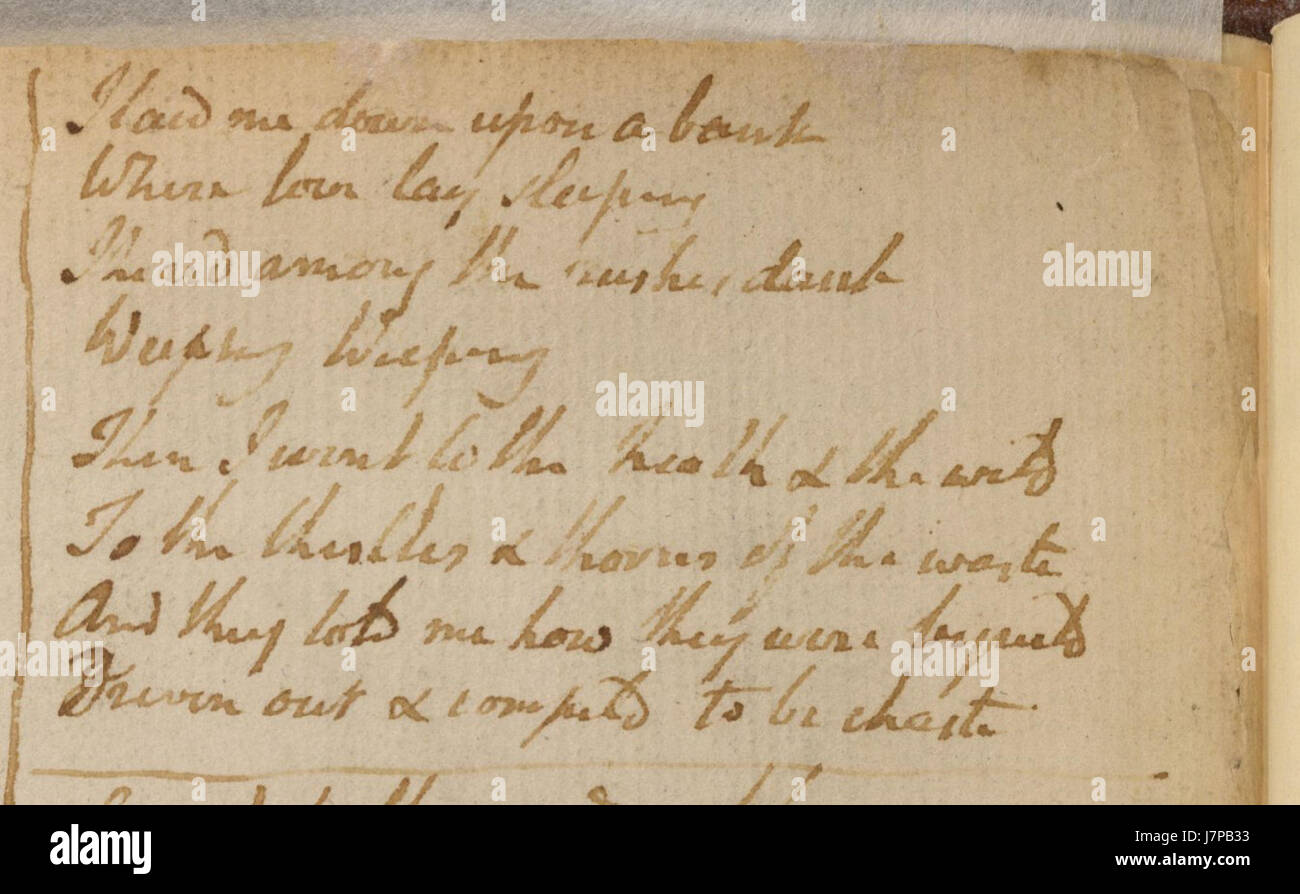 I laid me down upon a bank
Where love lay sleeping
I heard among the rushes dank
Weeping Weeping
Then I went to the heath & the wild
To the thistles & thorns of the waste
And they told me how they were beguild
Driven out & compeld to be chaste
alamy
Image ID: J7PB33
www.alamy.com